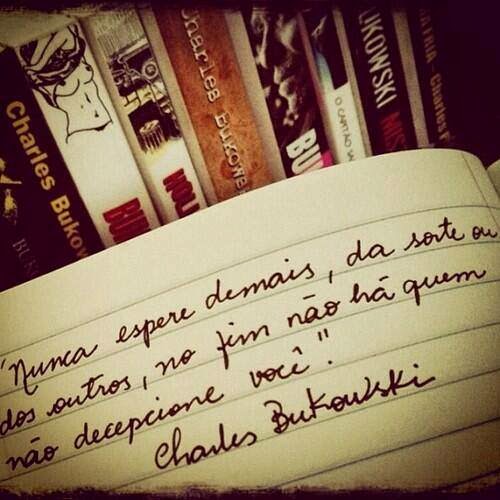 Charles Bukow
BUKOW
BU
HOLL
Charles Bukows
BU
O CAPITÃO SA
BUKOWSKI
MIS
Charles
"Nunca espere demais, da sorte ou
dos outros, no fim não há quem
não decepcione você".
Charles Bukowski